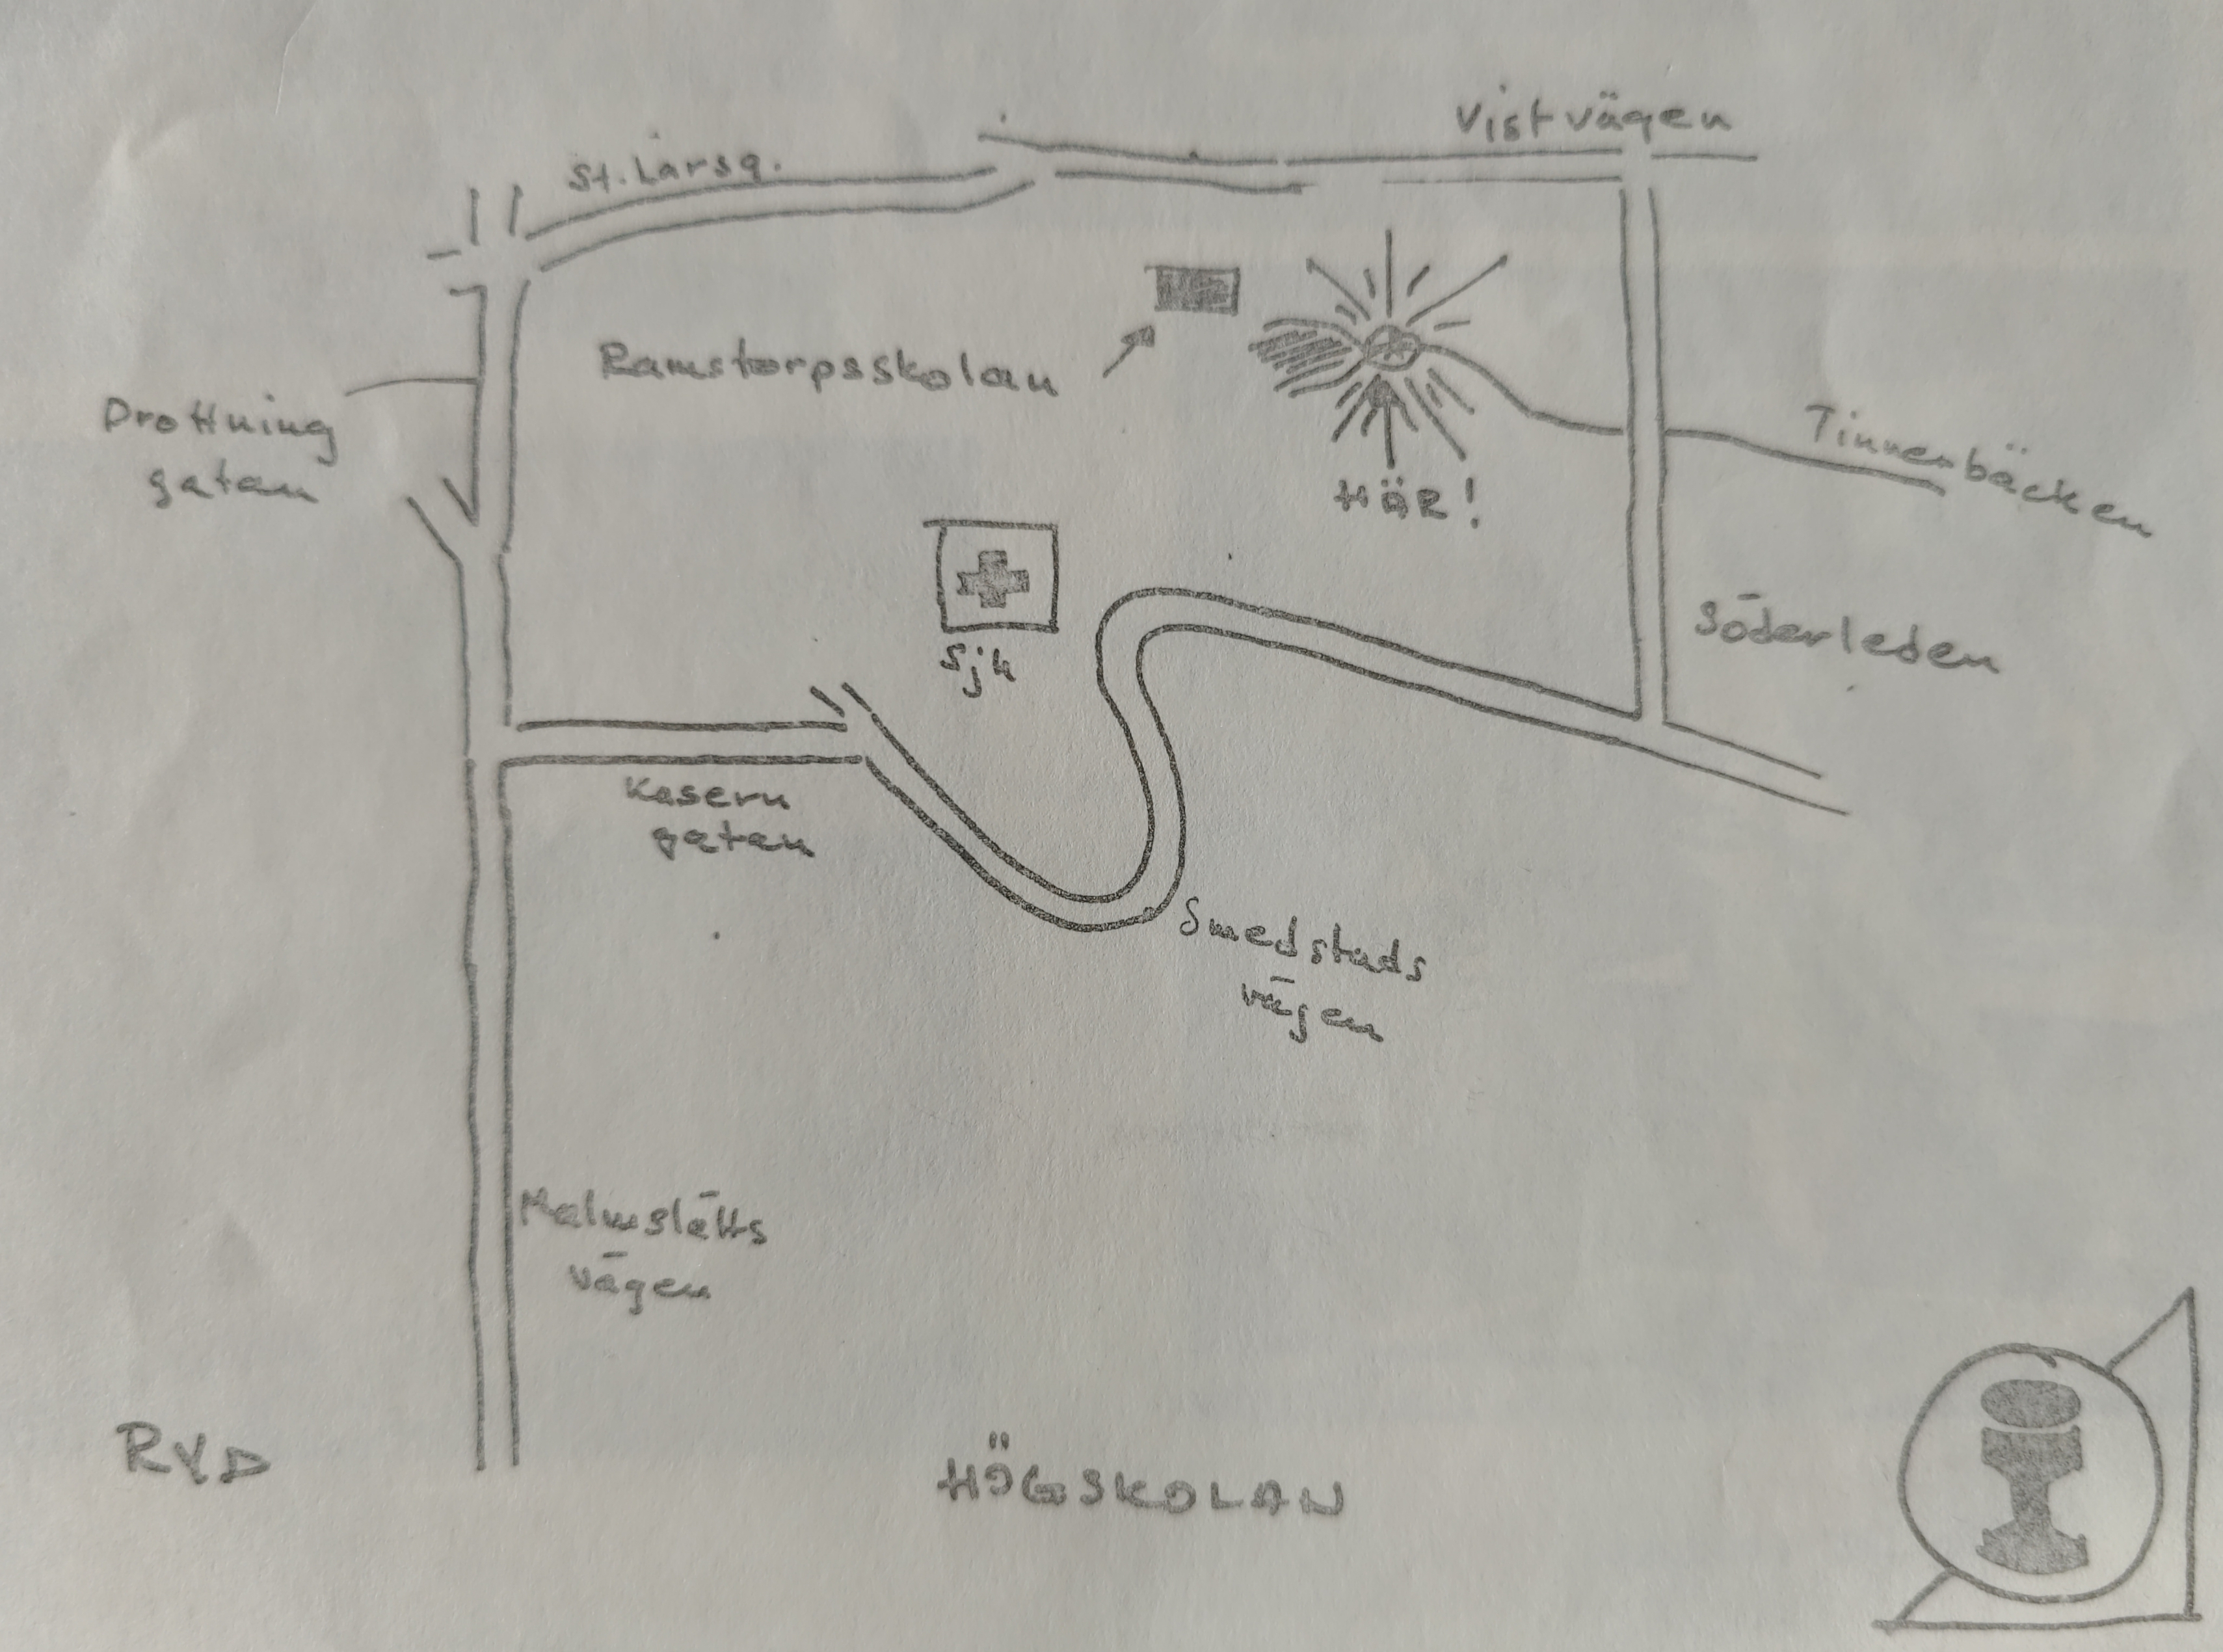 Vistvägen
St. Larsg.
Ramstorpsskolan
Drottning
gatan
HÄR!
Tinnerbäcken
Sjh
Söderleden
Kasern
gatan
Smedstads
vägen
Malmslätts
vägen
RYD
HÖGSKOLAN